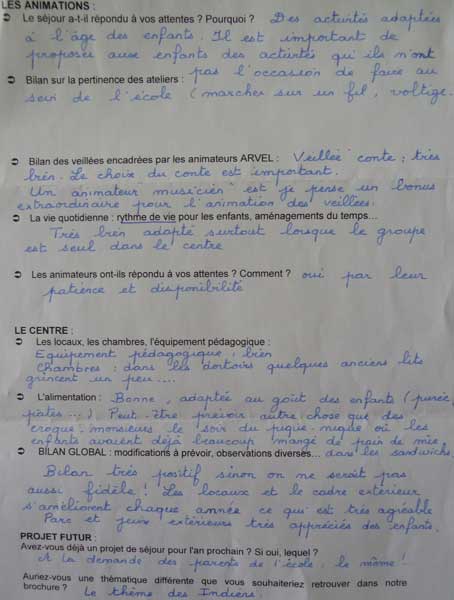 LES ANIMATIONS :
➲ Le séjour a-t-il répondu à vos attentes ? Pourquoi ? Des activités adaptées
à l'âge des enfants. Il est important de
proposer aux enfants des activités qu'ils n'ont
pas l'occasion de faire au
➲ Bilan sur la pertinence des ateliers :
sein de l'école (marcher sur un fil, voltige.
➲ Bilan des veillées encadrées par les animateurs ARVEL : Veillée conte : très
bien. Le choix du conte est important.
Un animateur "musicien" est je pense un bonus
extraordinaire pour l'animation des veillées.
➲ La vie quotidienne : rythme de vie pour les enfants, aménagements du temps...
Très bien adapté surtout lorsque le groupe
est seul dans le centre
➲ Les animateurs ont-ils répondu à vos attentes ? Comment ? oui par leur
patience et disponibilité
LE CENTRE :
➲ Les locaux, les chambres, l'équipement pédagogique :
Equipement pédagogique : bien
Chambres : dans les dortoirs quelques anciens lits
grincent un peu ....
➲ L'alimentation : Bonne, adaptée au goût des enfants (purée,
pâtes ...). Peut-être prévoir autre chose que des
croque-monsieurs le soir du pique-nique où les
enfants avaient déjà beaucoup mangé de pain de mie
dans les sandwichs.
➲ BILAN GLOBAL : modifications à prévoir, observations diverses...
Bilan très positif sinon on ne serait pas
aussi fidèle ! Les locaux et le cadre extérieur
s'améliorent chaque année ce qui est très agréable
Parc et jeux extérieurs très appréciés des enfants.
PROJET FUTUR :
Avez-vous déjà un projet de séjour pour l'an prochain ? Si oui, lequel ?
A la demande des parents de l'école : le même !
Auriez-vous une thématique différente que vous souhaiteriez retrouver dans notre
brochure ? Le thème des Indiens.